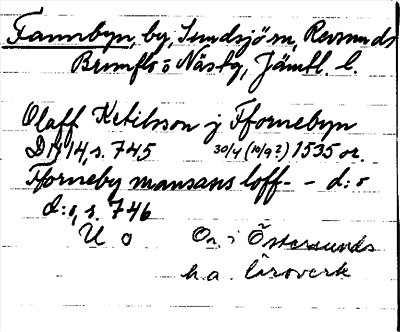 Fannbyn, by, Sundsjö sn, Revsunds
Brunflo o Näs tg, Jämtl. l.
Olaff Ketilsson j Ffornebyn
DN 14, s. 745 30/4 (10/9?) 1535 or.
Fforneby mansans loff - - d:o
d:o, s. 746
U o Or. i Östersunds
h.a. läroverk